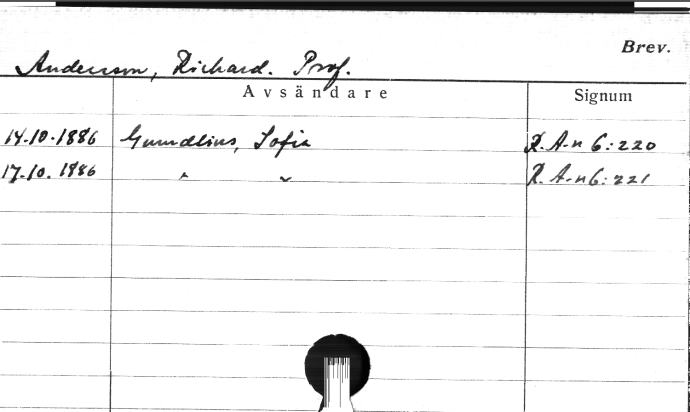 Brev.
Andersson, Richard. Prof.
Avsändare Signum
14.10.1886 Gumælius, Sofia R. A-n 6:220
17.10.1886 " " R. A-n 6:221